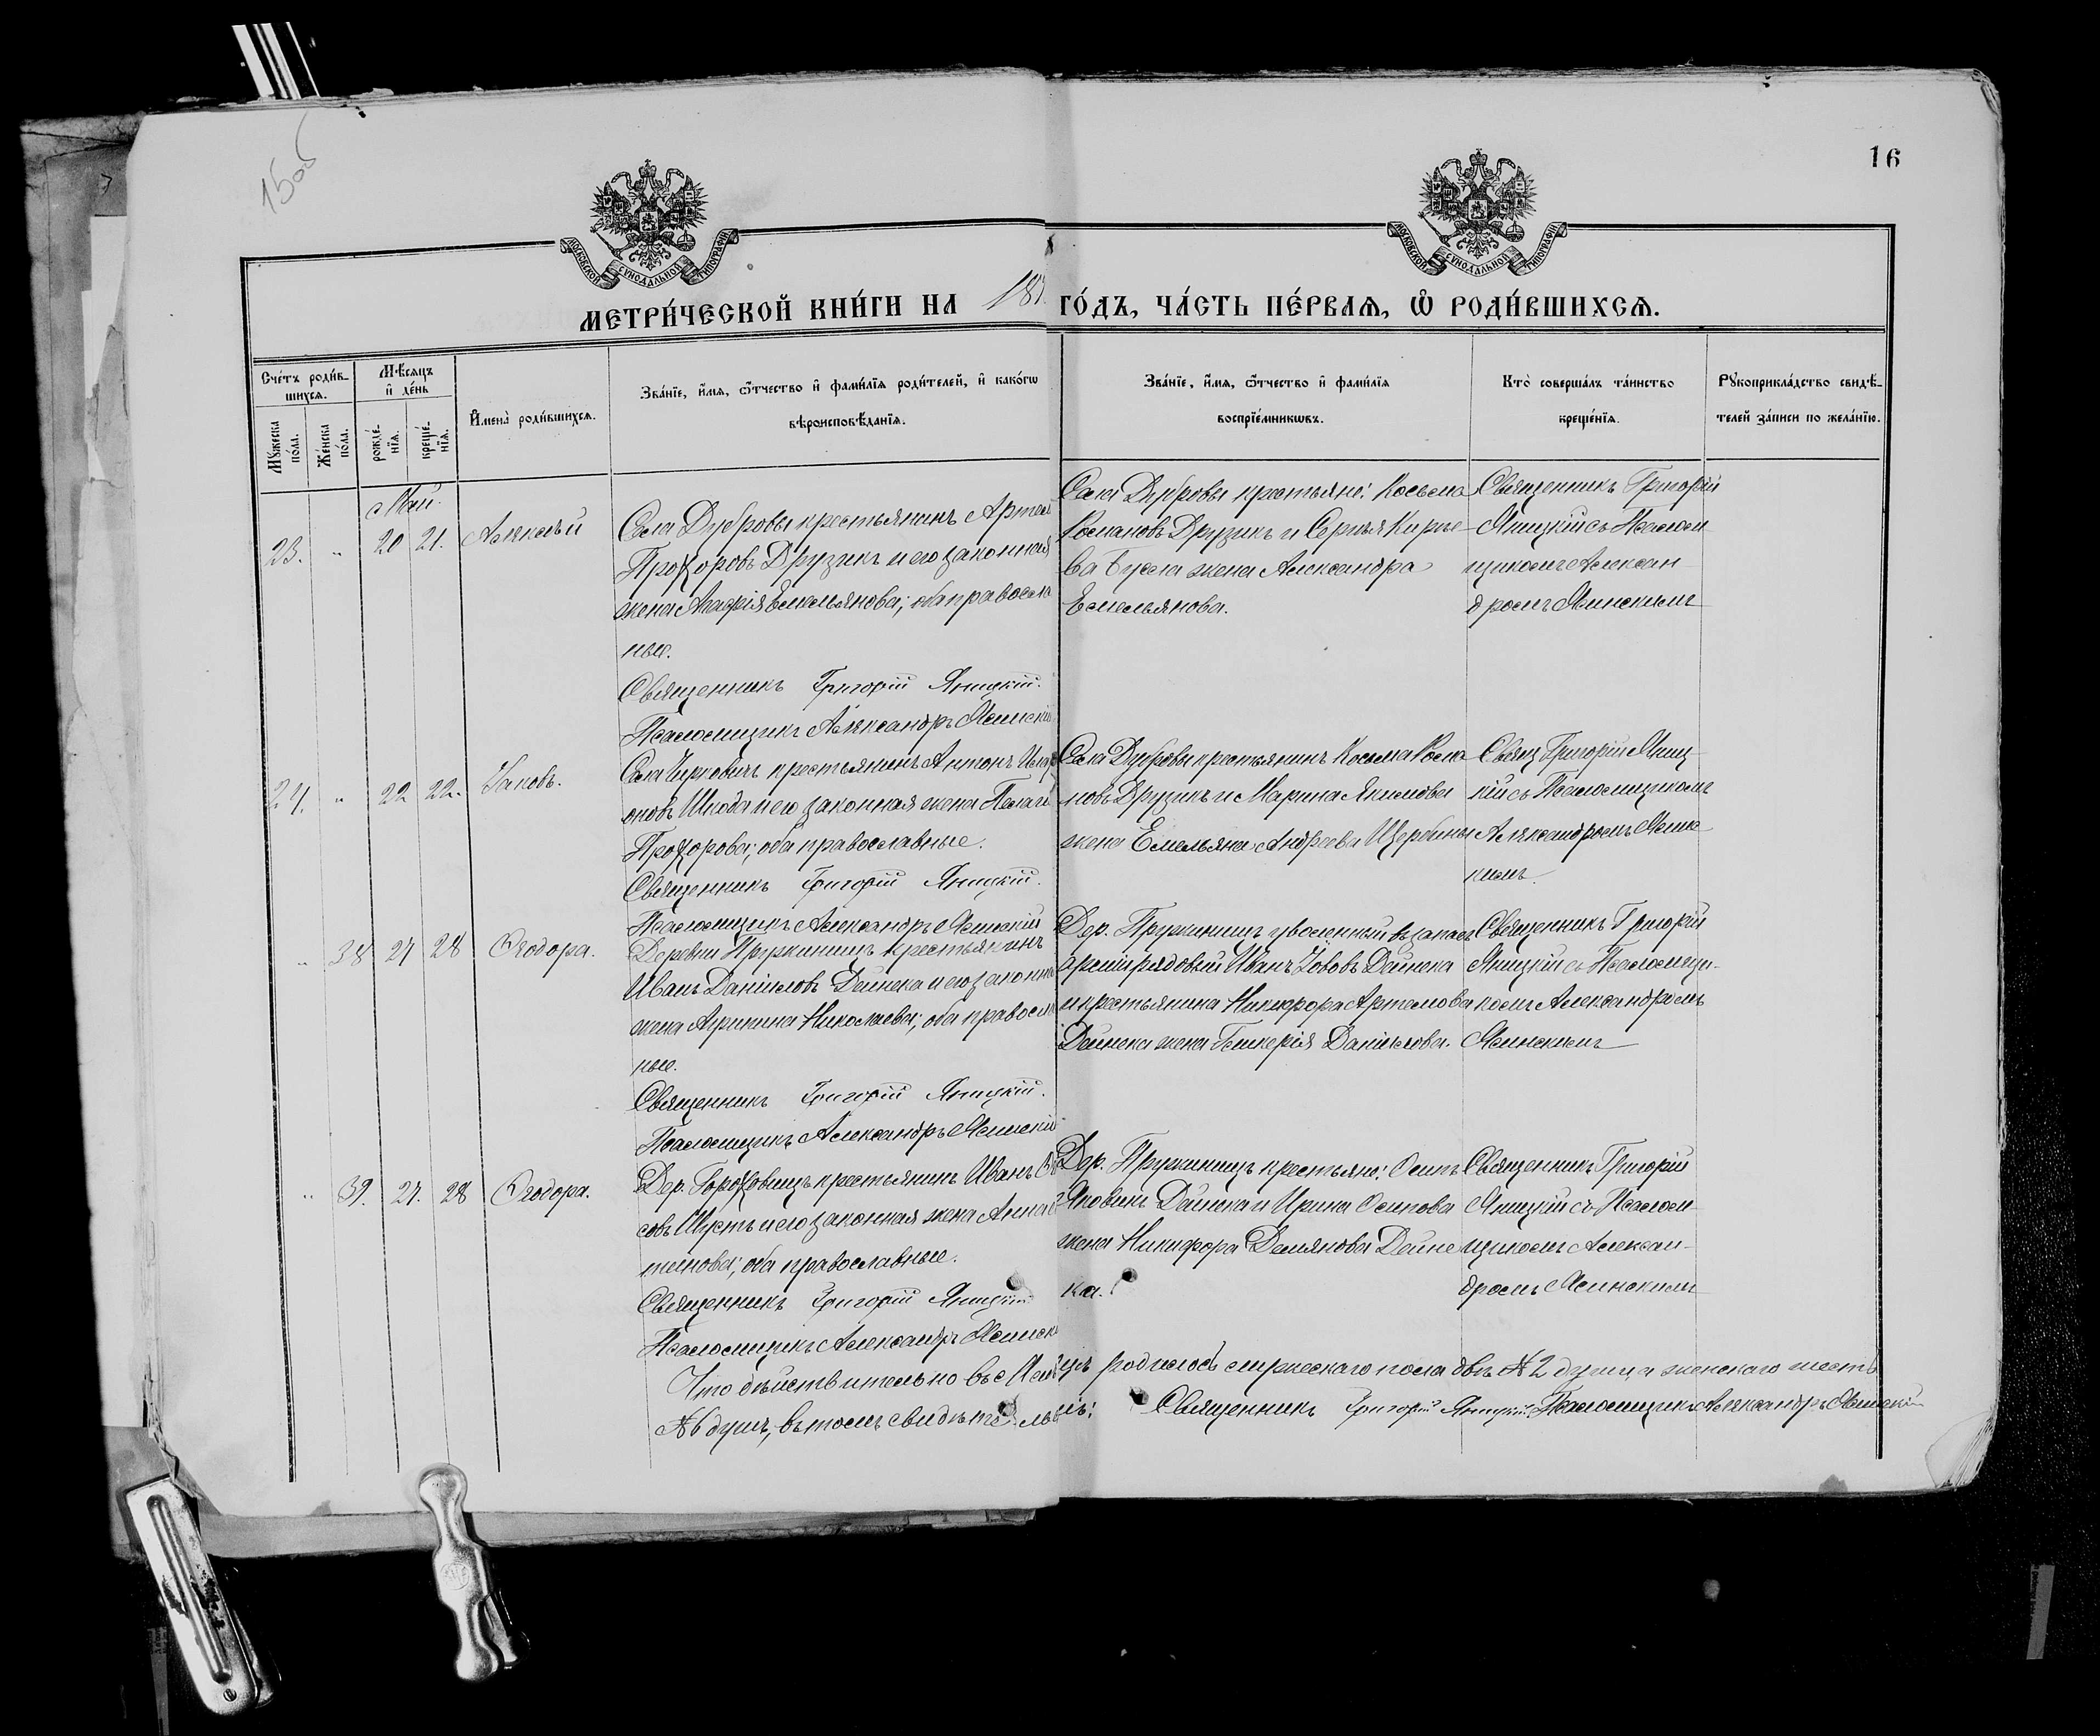 15об
16
МОСКОВСКОЙ СУНОДАЛЬНОЙ ТИПОГРАФІИ
МОСКОВСКОЙ СУНОДАЛЬНОЙ ТИПОГРАФІИ
МЕТРИ́ЧЕСКОЙ КНИ́ГИ НА 18 ГО́ДЪ, ЧА́СТЬ ПЕ́РВАѦ, Ѽ РОДИ́ВШИХСѦ.
Сче́тъ роди́в-
шихсѧ.
Мѣ́сѧцъ
и҆ де́нь
Мꙋ́жеска по́ла.
Же́нска по́ла.
рожде́-
нїѧ.
креще́-
нїѧ.
И҆мена̀ роди́вшихсѧ.
Зва́нїе, и҆́мѧ, ѻ҆́тчество и҆ фами́лїѧ роди́телей, и҆ како́гѡ
вѣроисповѣ́данїѧ.
Зва́нїе, и҆́мѧ, ѻ҆́тчество и҆ фами́лїѧ
воспрїе́мникѡвъ.
Кто̀ соверша́лъ та́инство
креще́нїѧ.
Рꙋкоприкла́дство свидѣ́-
телей за́писи по жела́нїю.
Май.
23. „ 20 21. Алексѣй
Села Дубровы крестьянинъ Артем
Прохоровъ Друзикъ и его законная
жена Агафія Емельянова; оба православ
ные.
Священникъ Григорій Яницкій.
Псаломщикъ Александръ Ясинскій
Села Дубровы крестьяне: Косьма
Романовъ Друзикъ и Сергѣя Кирѣе
ва Бусла жена Александра
Емельянова.
Священникъ Григорій
Яницкій съ Псалом
щикомъ Алексан
дромъ Ясинскимъ
24. „ 22 22. Іаковъ.
Села крестьянинъ Антонъ
оновъ Шкода и его законная жена Пелагі
Прохорова; оба православные.
Священникъ Григорій Яницкій.
Псаломщикъ Александръ Ясинскій
Села Дубровы крестьянинъ Косьма Рома
новъ Друзикъ и Марина Якимова
жена Емельяна Андреева Щербины
Священ Григорій Яниц
кій съ Псаломщикомъ
Александромъ Ясинс
кимъ.
„ 38 27 28 Ѳеодора.
Деревни Пружиницъ крестьянинъ
Иванъ Даніиловъ Дейнека и его законна
жена Агрипина Николаева; оба православ
ные.
Священникъ Григорій Яницкій.
Псаломщикъ Александръ Ясинскій
Дер. Пружиницъ уволенный въ запасъ
арміи рядовый Иванъ Іововъ Дейнека
и крестьянина Никифора Артемова
Дейнека жена Гликерія Даніилова.
Священникъ Григорій
Яницкій съ Псаломщи-
комъ Александромъ
Ясинскимъ
„ 39. 27. 28 Ѳеодора.
Дер. Гороховищъ крестьянинъ Иванъ
совъ и его законная жена Анна
тинова; оба православные.
Священникъ Григорій Яницкій
Псаломщикъ Александръ Ясинск
Дер. Пружиницъ крестьяне: Осипъ
Яковинъ Дейнека и Ирина Осипова
жена Никифора Демянова Дейне
ка.
Священникъ Григорій
Яницкій съ Псалом
щикомъ Алексан-
дромъ Ясинскимъ
Что дѣйствительно въ е Мѣсяцѣ родилось мужескаго пола двѣ № 2 души а женскаго шесть
№ 6 душъ, въ томъ свидѣтельствуемъ: Священникъ Григорій Яницкій. Псаломщикъ Александръ Ясинскій